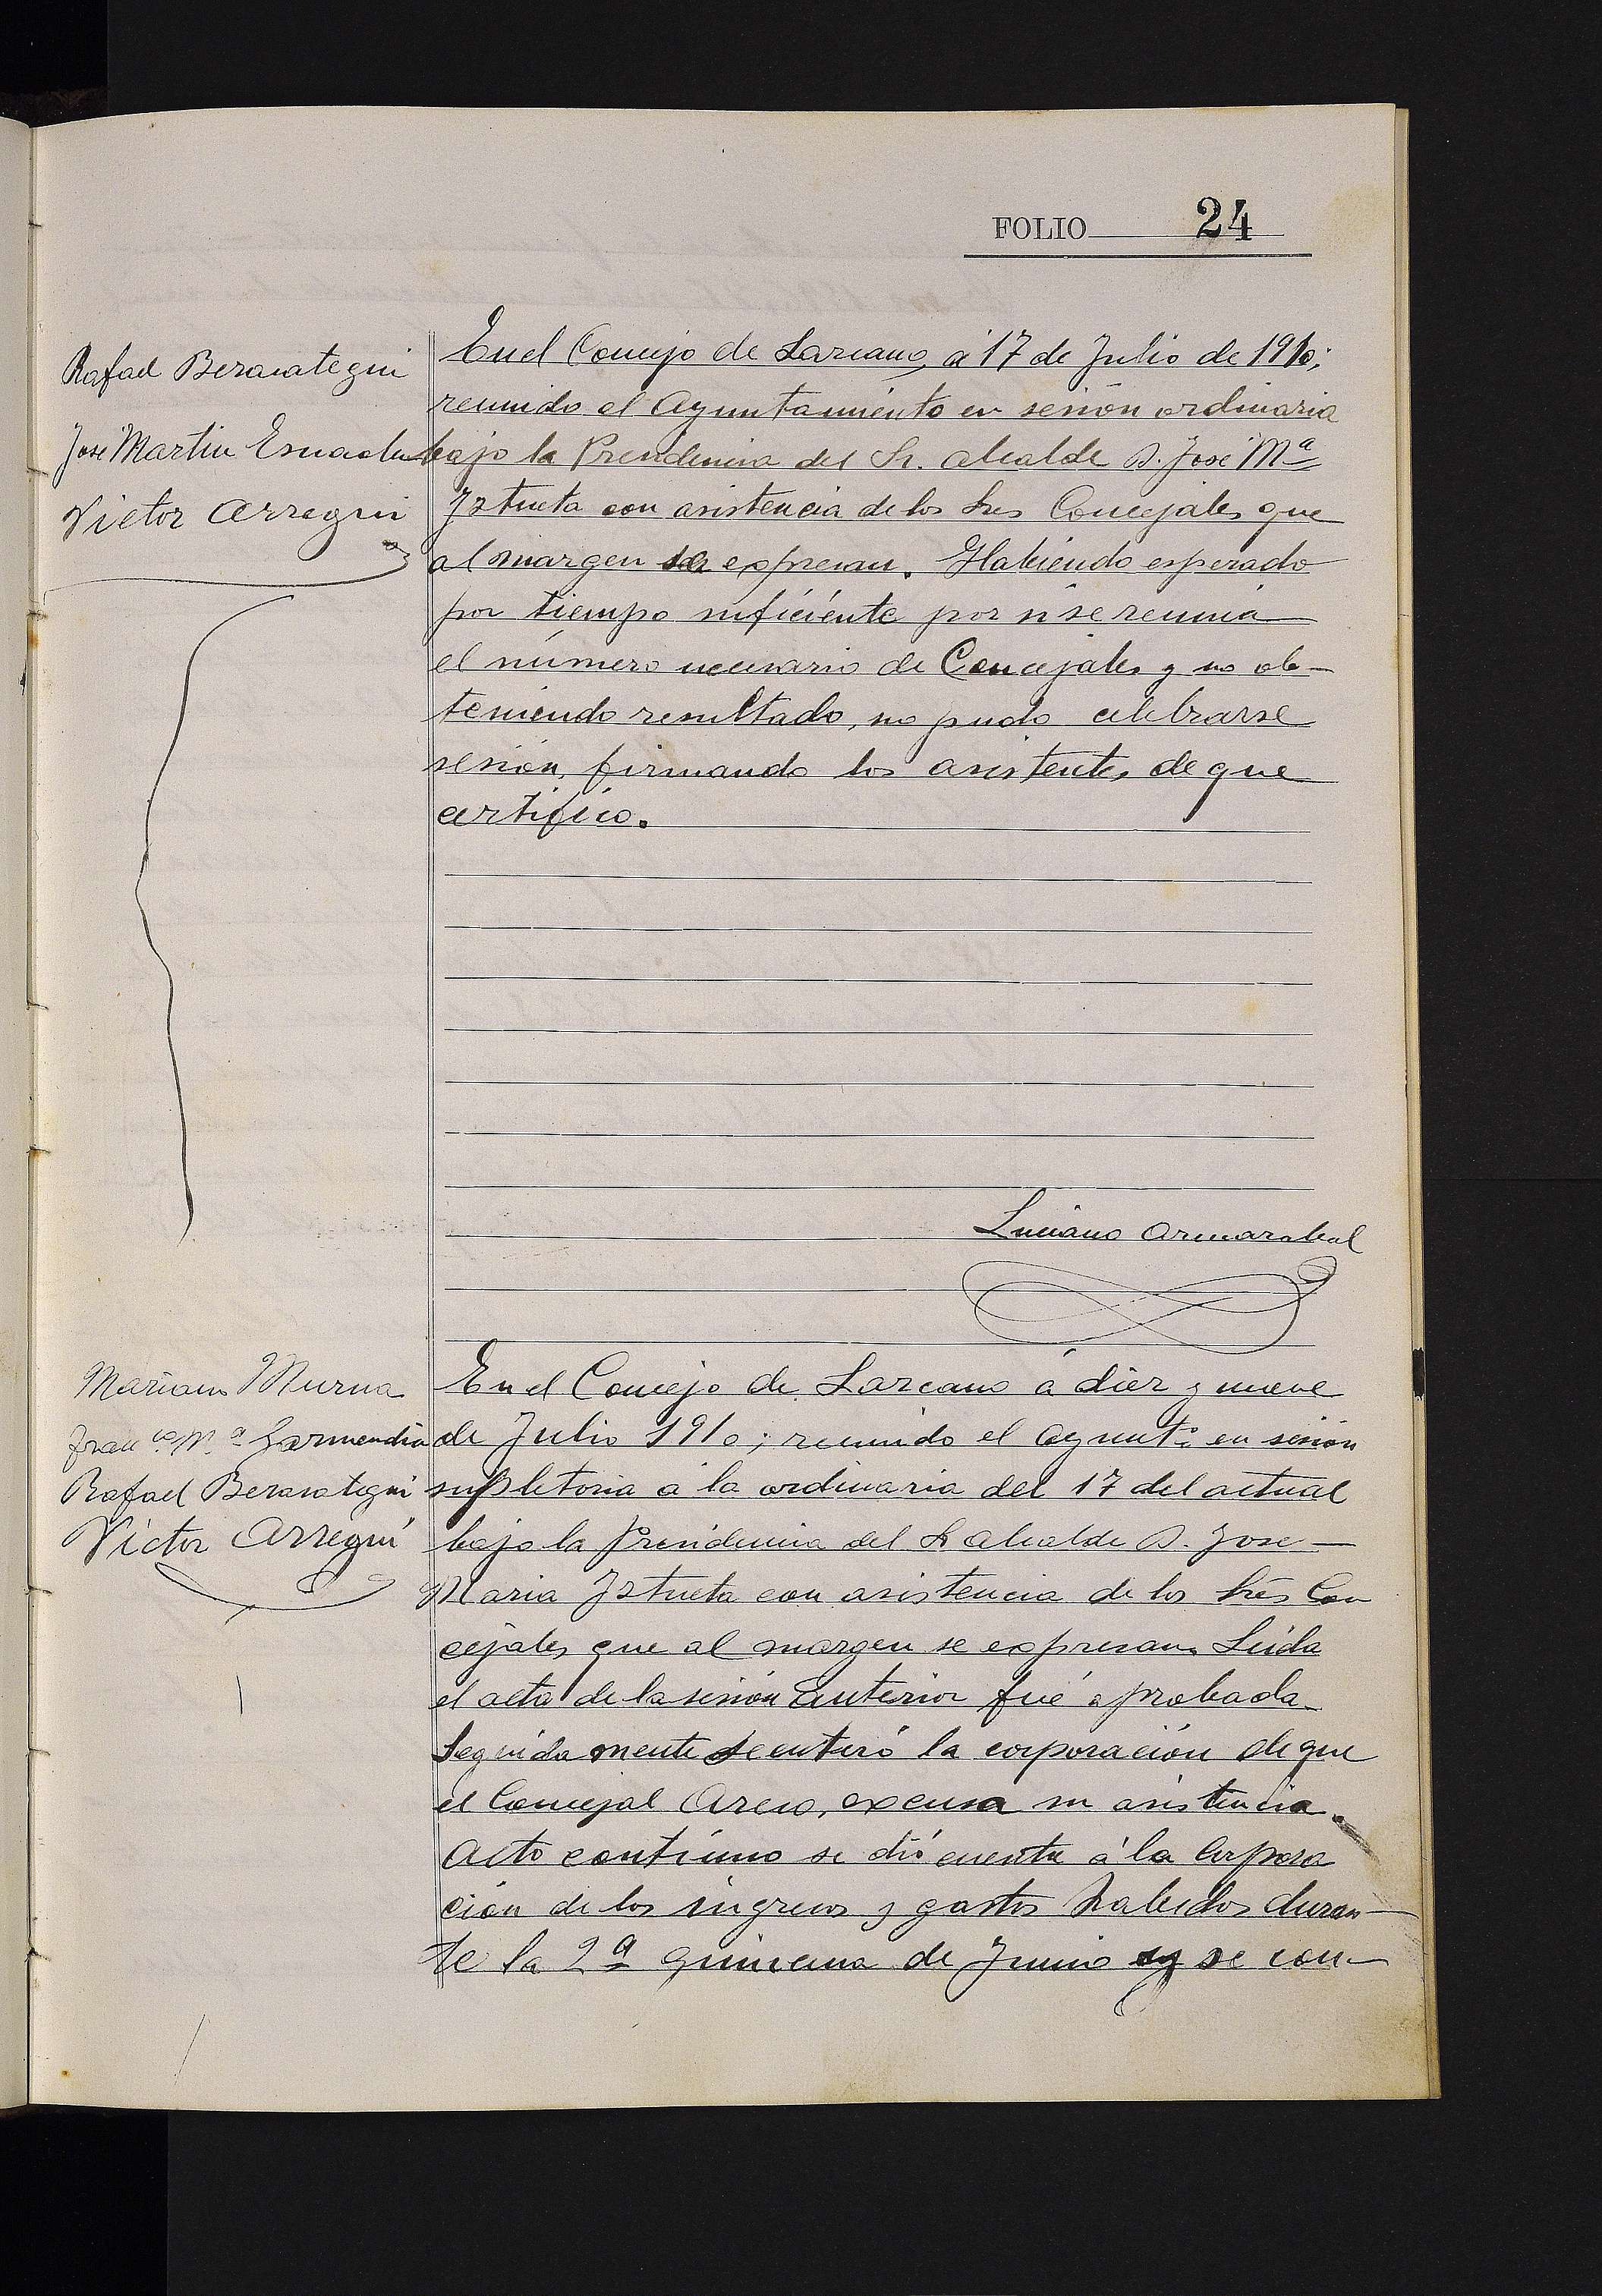 FOLIO 24
Rafael Berasategui
José Martin
Victor Arregui
En el Concejo de Lazcano, á 17 de Julio de 1910;
reunido el Ayuntamiento en sesión ordinaria
bajo la Presidencia del Sr. Alcalde D. José Mª
Iztueta con asistencia de los Sres Concejales que
al margen se expresan. Habiendo esperado
por tiempo suficiente por si se reunia
el número necesario de Concejales y no ob-
teniendo resultado, no pudo celebrarse
sesión, firmando los asistentes, de que
certifico.
Luciano Armarabal
Mariano Murua
Franco Mª Garmendia
Rafael Berasategui
Victor Arregui
En el Concejo de Lazcano á diez y nueve
de Julio 1910; reunido el Ayuntº en sesión
supletoria á la ordinaria del 17 del actual
bajo la Presidencia del Sr Alcalde D. Jose
Maria Iztueta con asistencia de los Sres Con
cejales que al margen se expresan. Leida
el acta de la sesión anterior fué aprobada.
Seguidamente se enteró la corporación de que
el Concejal Arcio, excusa su asistencia.
Acto contínuo se dió cuenta á la Corpora
ción de los ingresos y gastos habidos duran-
te la 2ª quincena de Junio y se con-